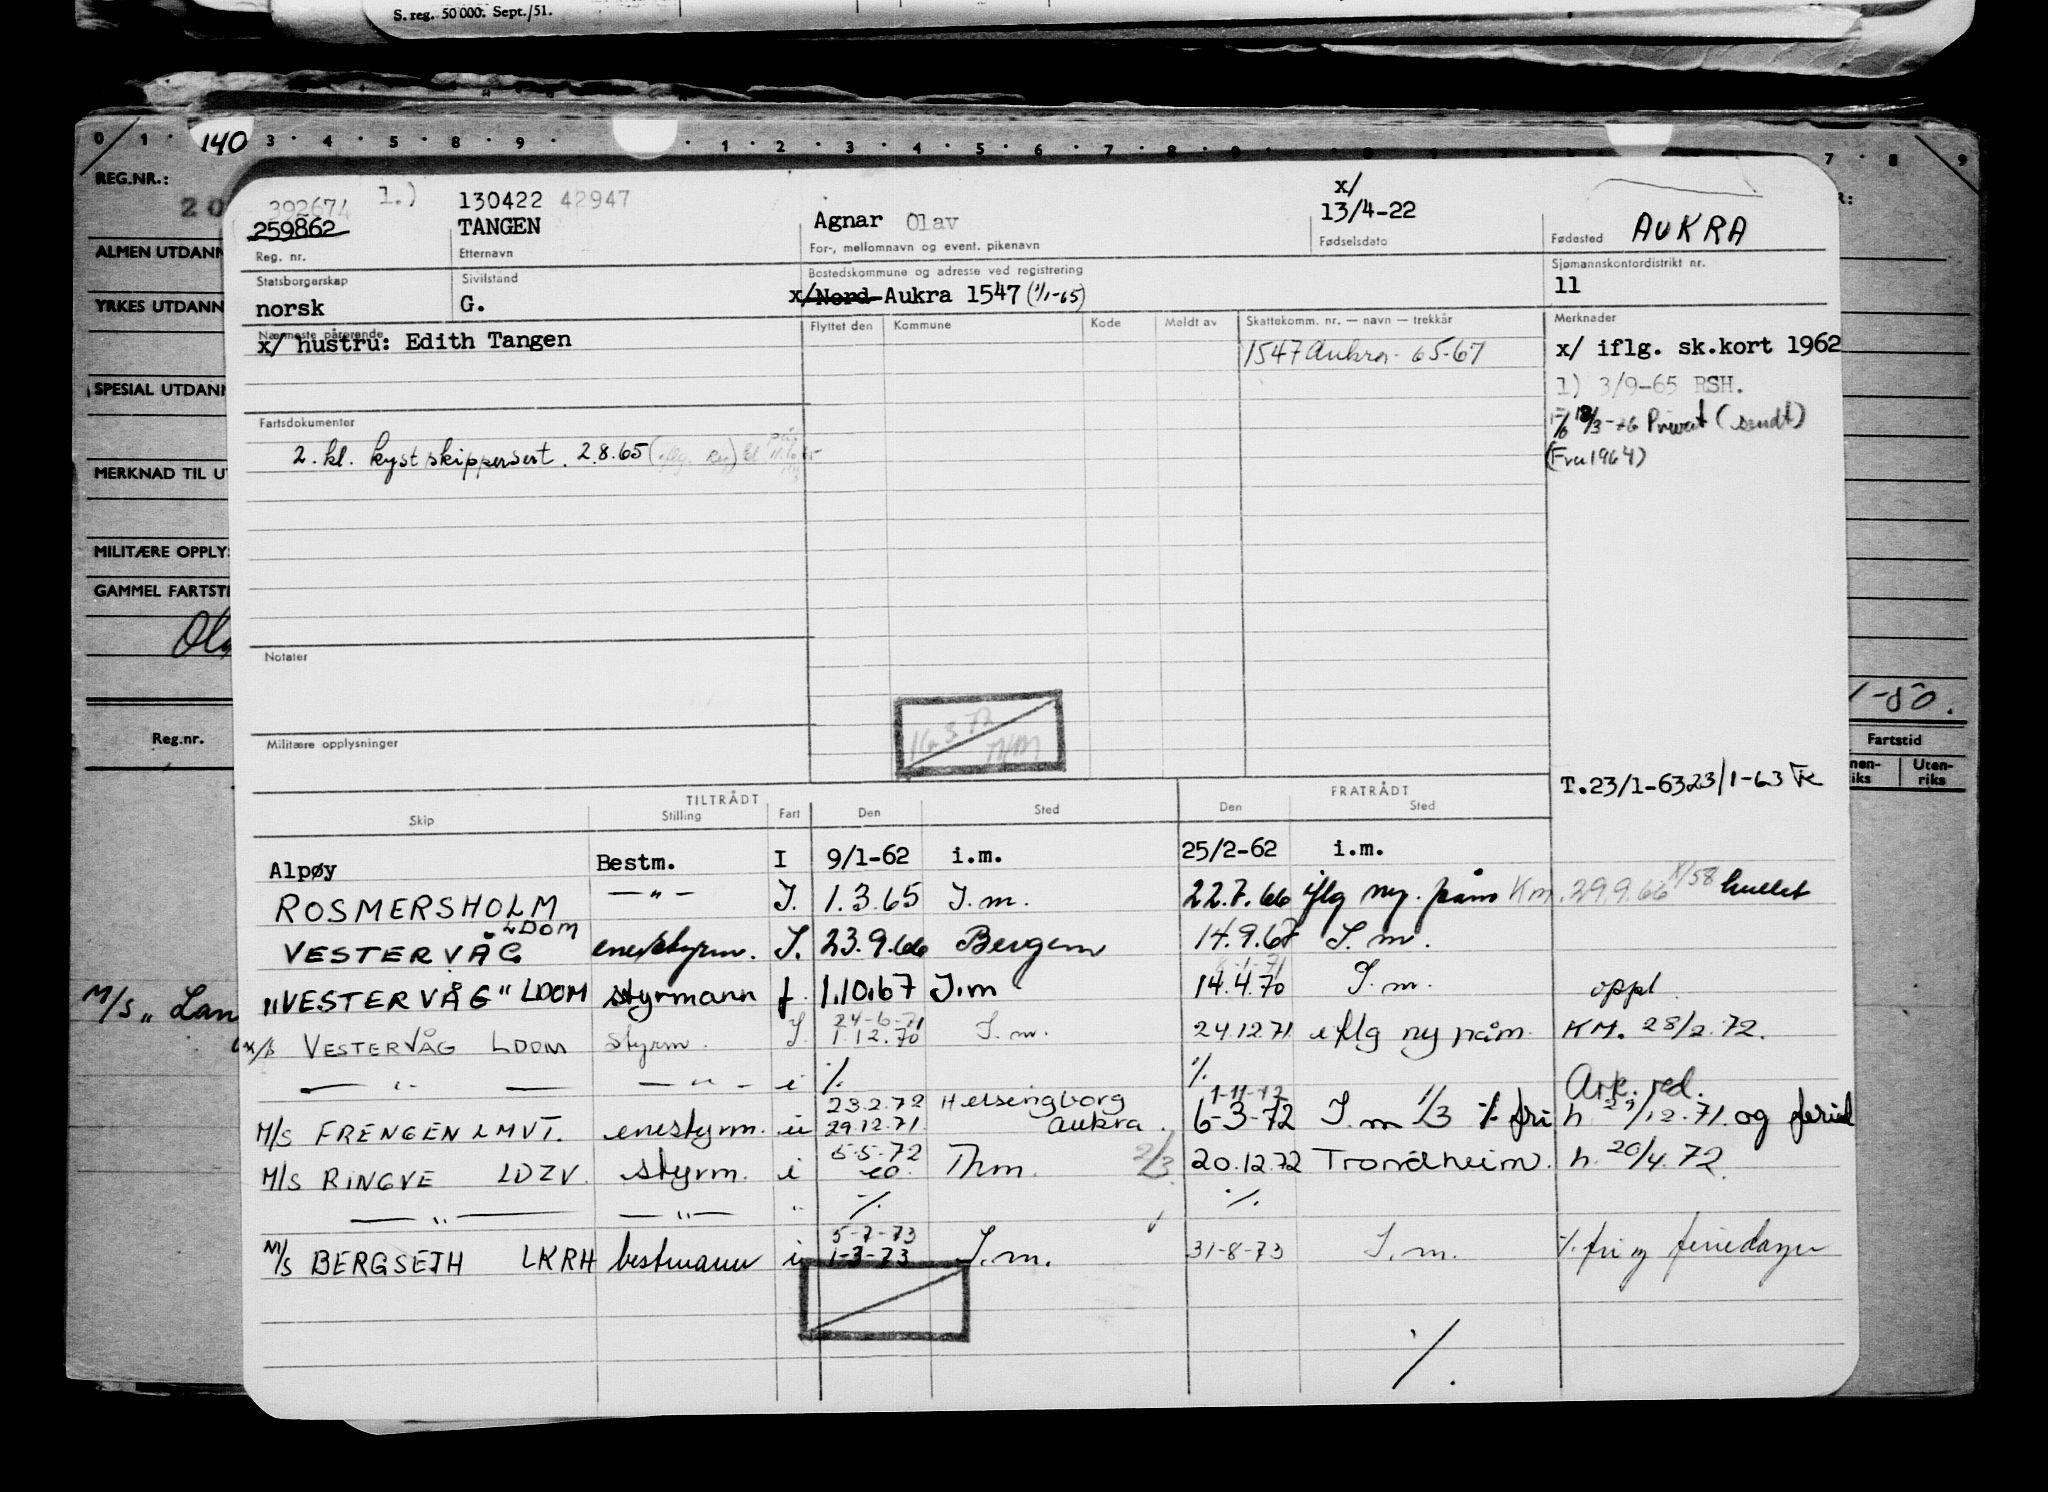 S. reg. 50 000. Sept./51.
0 1 140 3 4 5 8 9 1 2 3 4 5 6 7 8 9 7 8 9
REG.NR.:
20
392674 1.) 130422 42947 x/
259862 TANGEN Agnar Olav 13/4-22 AUKRA
Reg. nr. Etternavn For-, mellomnavn og event. pikenavn Fødselsdato Fødested
ALMEN UTDANN
Statsborgerskap Sivilstand Bostedskommune og adresse ved registrering Sjømannskontordistrikt nr.
norsk G. x/Nord-Aukra 1547 (1/1-65) 11
YRKES UTDANN
Nærmeste pårørende Flyttet den Kommune Kode Meldt av Skattekomm. nr. — navn — trekkår Merknader
x/ hustru: Edith Tangen 1547 Aukra - 65-67 x/ iflg. sk.kort 1962
SPESIAL UTDANN
1) 3/9-65 RSH.
Privat (sendt)
(Fra 1964)
Fartsdokumenter
2. kl. kystskippersert. 2.8.65
MERKNAD TIL U
MILITÆRE OPPLYS
GAMMEL FARTSTI
Notater
Militære opplysninger
-50.
Reg.nr. Fartstid
nen-
iks
Uten-
riks
T.23/1-63 23/1-63
TILTRÅDT FRATRÅDT
Skip Stilling Fart Den Sted Den Sted
Alpøy Bestm. I 9/1-62 i.m. 25/2-62 i.m.
ROSMERSHOLM —"— I. 1.3.65 I.m. 22.7.66 iflg ny. påm Km. 29.9.66 1/58 hullet
LDOM
VESTERVÅG enestyrm. I. 23.9.66 Bergen 14.9.67 I.m.
"VESTERVÅG" LDOM styrmann f. 1.10.67 I.m 14.4.70 I.m. oppl.
M/S „Lan
24-6-71
M/S VESTERVÅG LDOM styrm. I. 1.12.70 I.m. 24.12.71 iflg ny påm. KM. 28/2.72.
— " — — " — i % %
Ark. red.
23.2.72 Helsingborg 1-11-72
M/S FRENGEN LMVT. enestyrm. u 29.12.71. Aukra. 6-3-72 I.m 1/3 % fri h 29/12.71. og ferie
5-5-72
M/S RINGVE LDZV. styrm. i Thm. 2/3 20.12.72 Trondheim. h. 20/4.72
— " — — " — " % %
5-7-73
M/S BERGSETH LKRH bestmann u 1-3-73 I.m. 31-8-73 I.m. % fri og feriedager
%